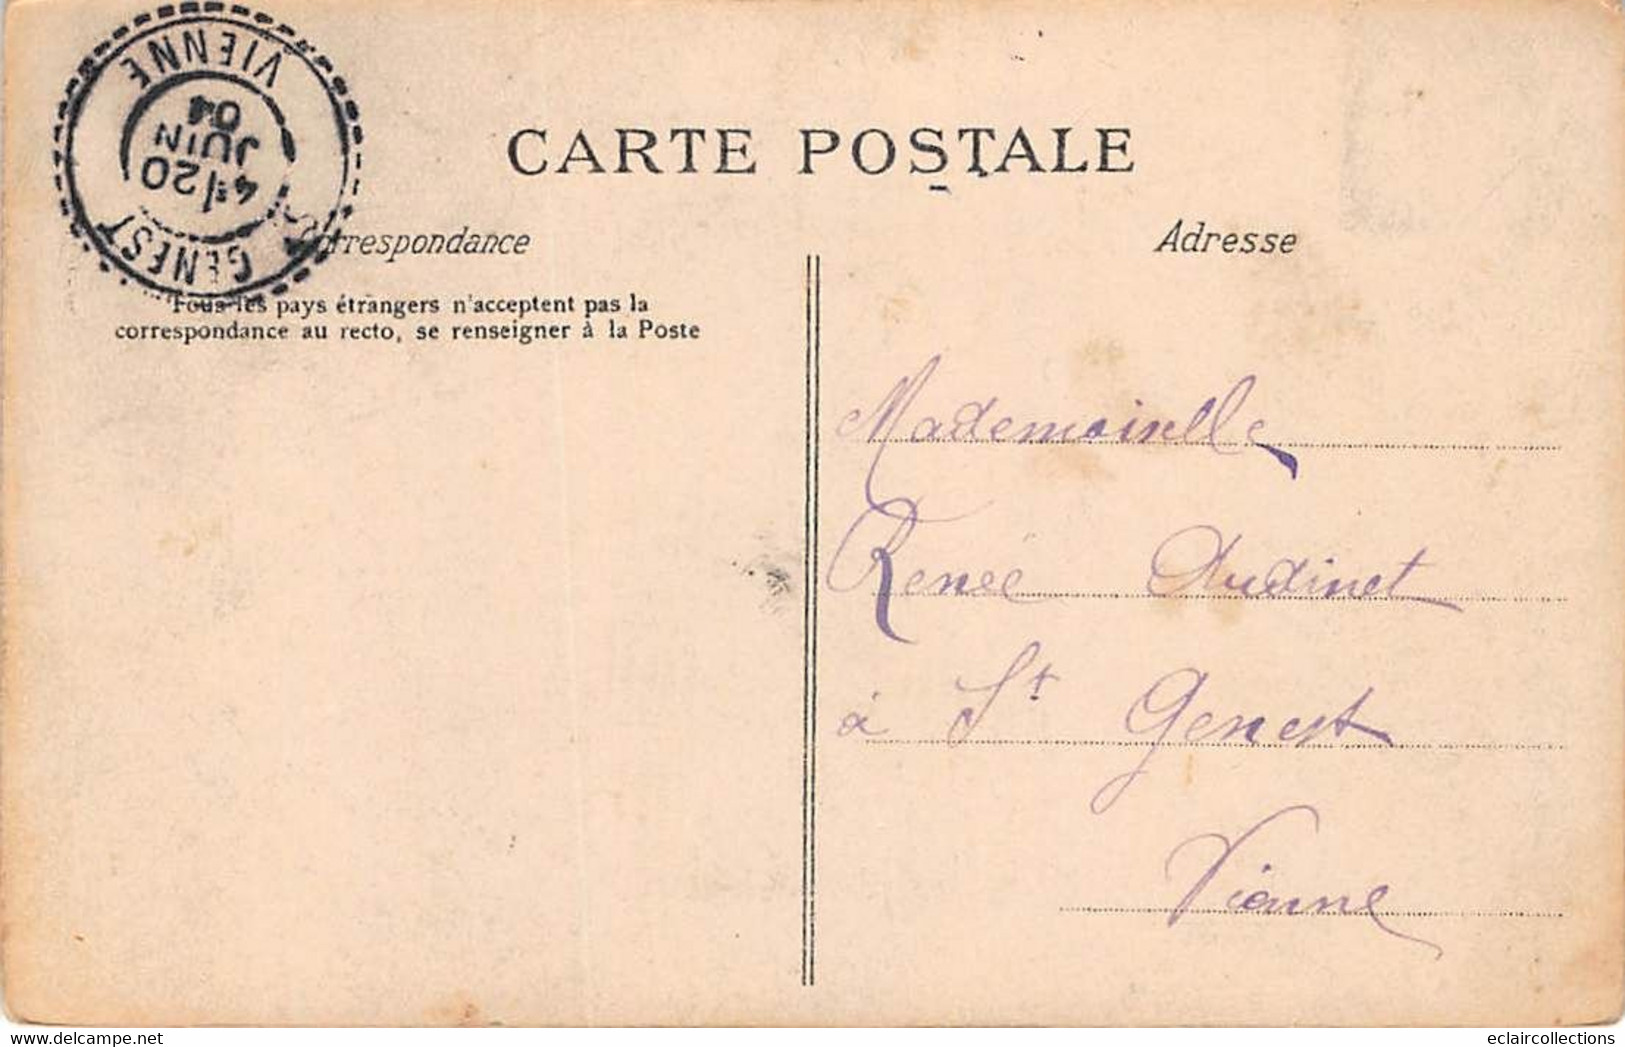 VIENNE
4ᴱ/20
JUIN
04
GENEST
CARTE POSTALE
Correspondance
Adresse
Tous les pays étrangers n'acceptent pas la
correspondance au recto, se renseigner à la Poste
Mademoiselle
Renée Audinet
à St Genest
Vienne
eclaircollections